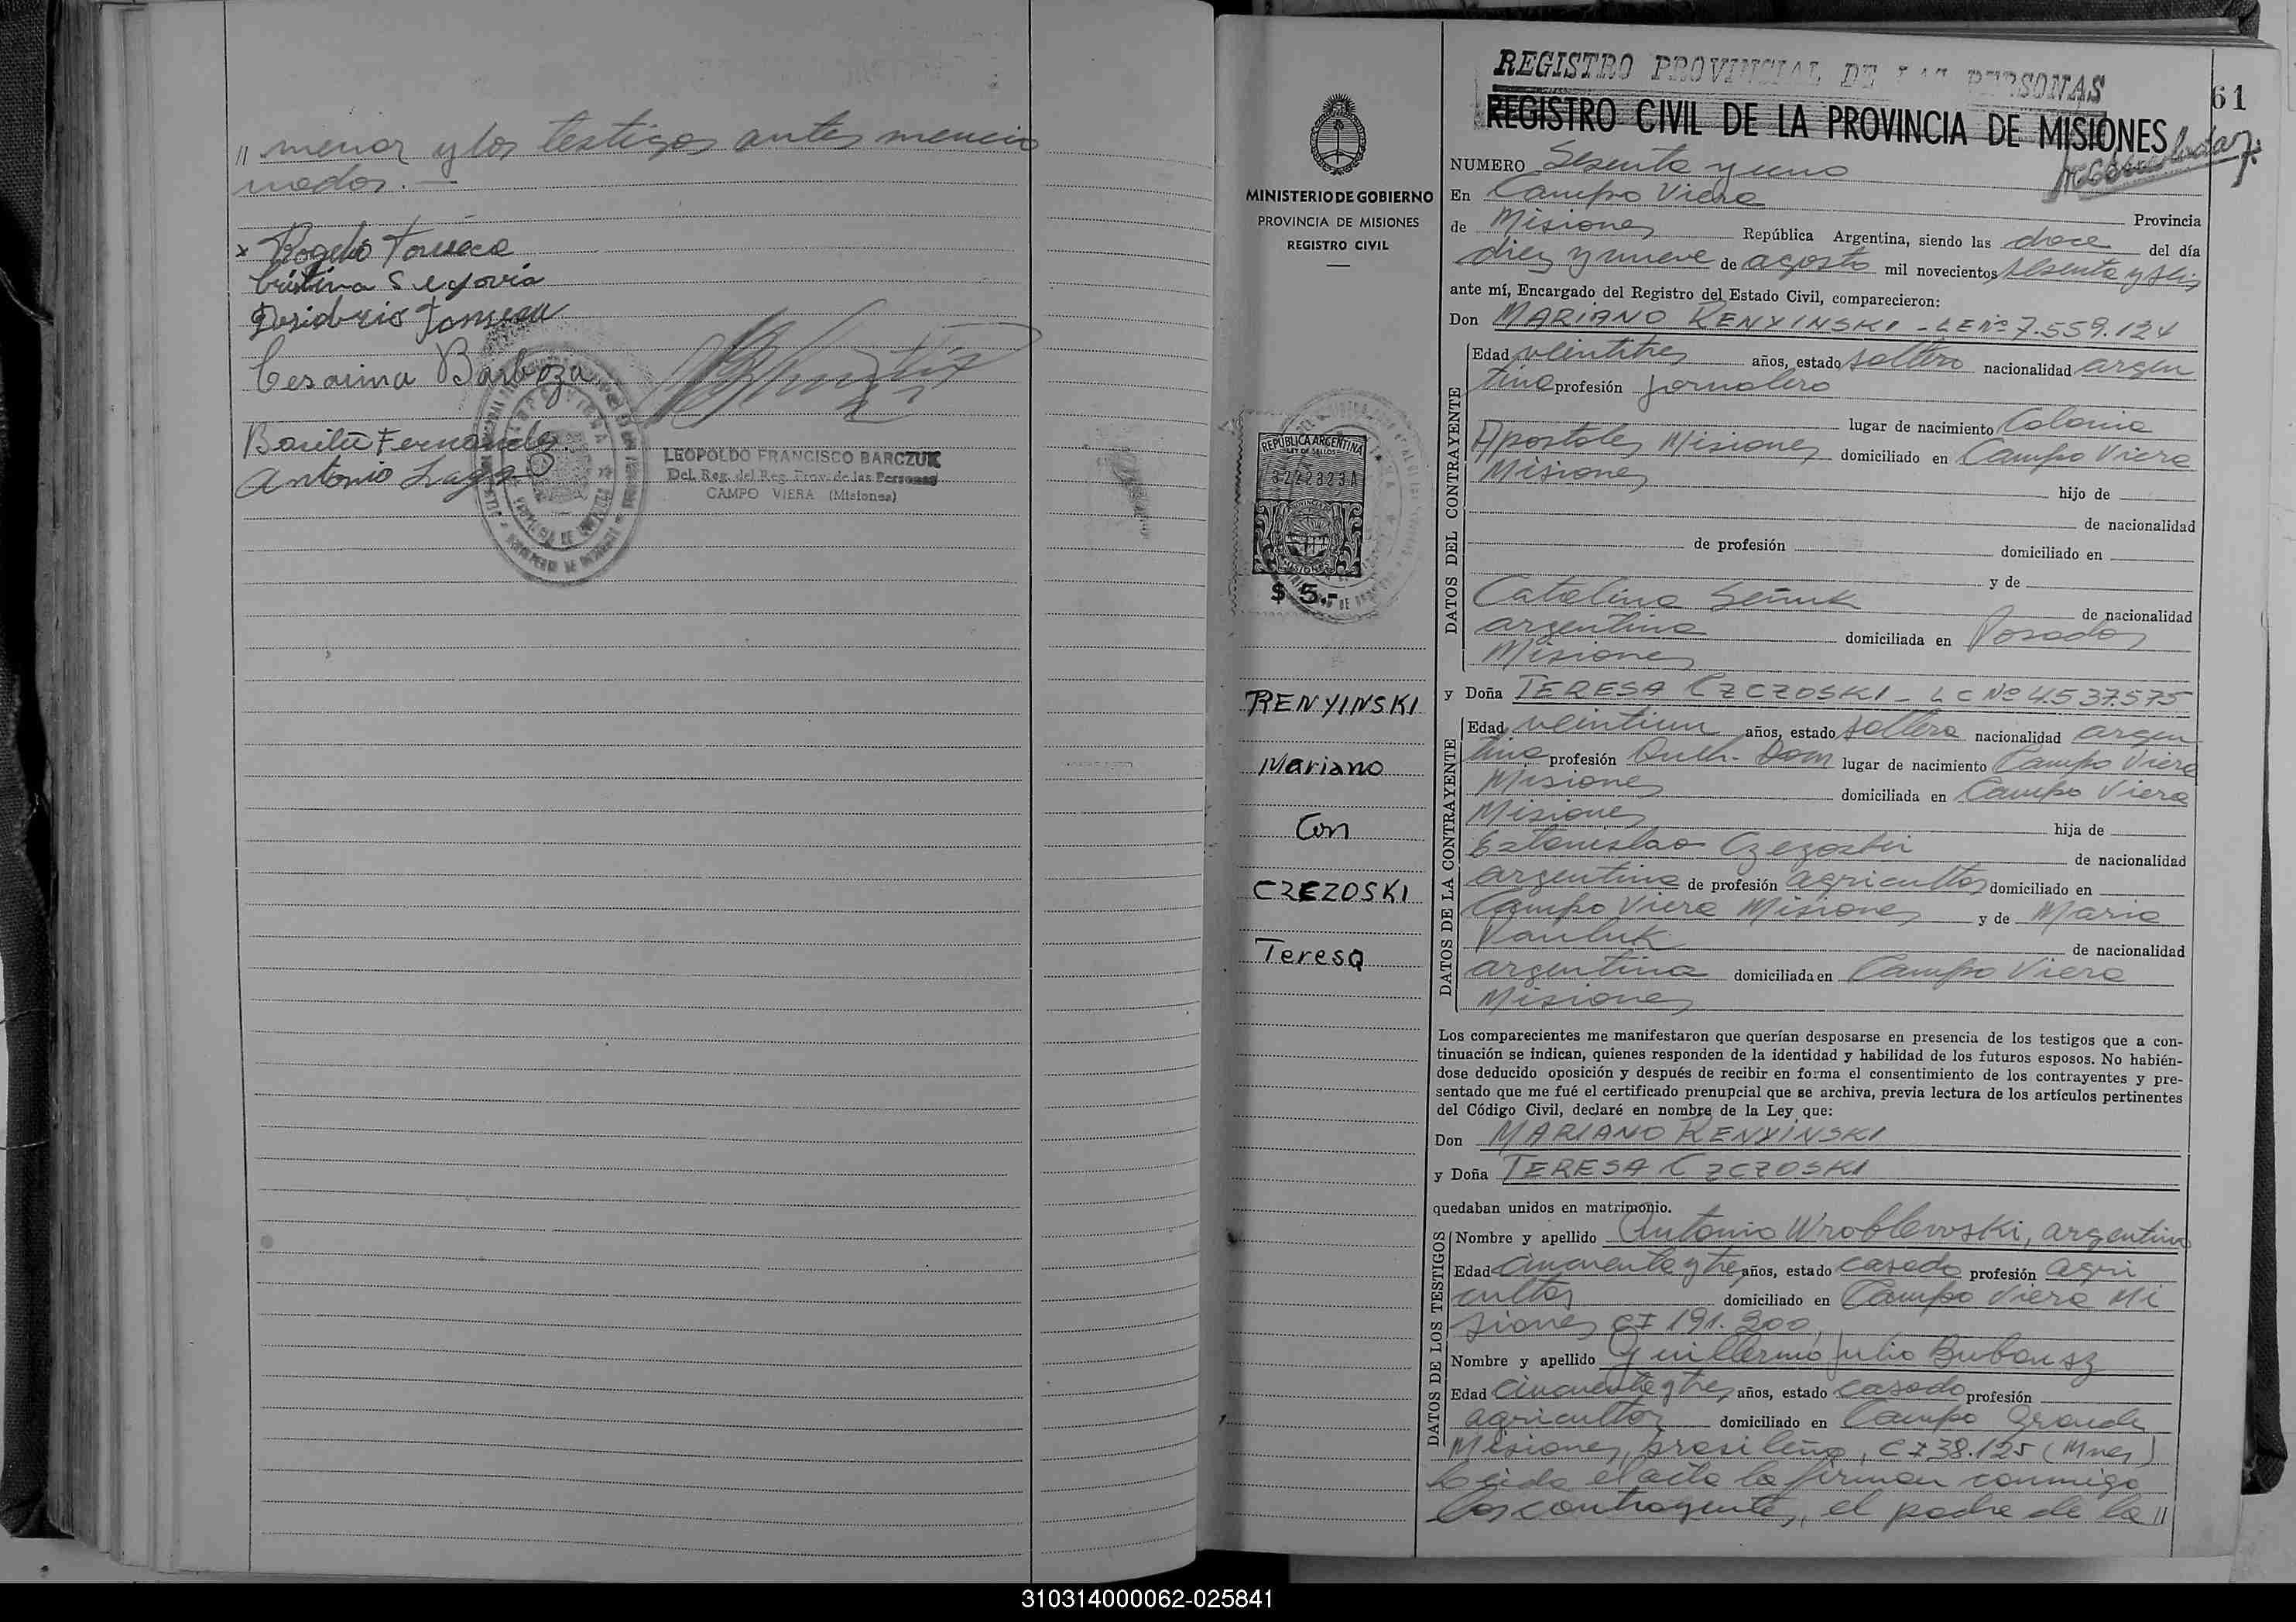 // menor y los testigos antes mencio
nados.—
x Rogelio Fonseca
Cristina Segovia
Desiderio Fonseca
Cesarina Barboza
Antonio
LEOPOLDO FRANCISCO BARCZUK
Del. Reg. del Reg. Prov. de las Personas
CAMPO VIERA (Misiones)
MINISTERIO DE GOBIERNO
PROVINCIA DE MISIONES
REGISTRO CIVIL
REPUBLICA ARGENTINA
LEY DE SELLOS
3222323A
MISIONES
$ 5.-
RENYINSKI
Mariano
Con
CZEZOSKI
Teresa
REGISTRO PROVINCIAL DE LAS PERSONAS
61
REGISTRO CIVIL DE LA PROVINCIA DE MISIONES
NUMERO Sesenta y uno
En Campo Viera
Provincia
de Misiones República Argentina, siendo las doce del día
diez y nueve de agosto mil novecientos sesenta y seis
ante mí, Encargado del Registro del Estado Civil, comparecieron:
Don MARIANO RENYINSKI - LE Nº 7.559.124
DATOS DEL CONTRAYENTE
Edad veintitres años, estado soltero nacionalidad argen
tina profesión jornalero
lugar de nacimiento Colonia
Apostoles Misiones domiciliado en Campo Viera
Misiones hijo de
de nacionalidad
de profesión domiciliado en
y de
Catalina Señuk de nacionalidad
argentina domiciliada en Posadas
Misiones
y Doña TERESA CZCZOSKI - LC Nº 4.537.575
DATOS DE LA CONTRAYENTE
Edad veintiun años, estado soltera nacionalidad argen
tina profesión Queh. Dom lugar de nacimiento Campo Viera
Misiones domiciliada en Campo Viera
Misiones hija de
Estanislao Czezoski de nacionalidad
argentina de profesión agricultor domiciliado en
Campo Viera Misiones y de Maria
Pauluk de nacionalidad
argentina domiciliada en Campo Viera
Misiones
Los comparecientes me manifestaron que querían desposarse en presencia de los testigos que a con-
tinuación se indican, quienes responden de la identidad y habilidad de los futuros esposos. No habién-
dose deducido oposición y después de recibir en forma el consentimiento de los contrayentes y pre-
sentado que me fué el certificado prenupcial que se archiva, previa lectura de los artículos pertinentes
del Código Civil, declaré en nombre de la Ley que:
Don MARIANO RENYINSKI
y Doña TERESA CZCZOSKI
quedaban unidos en matrimonio.
DATOS DE LOS TESTIGOS
Nombre y apellido Antonio Wroblewski, argentino
Edad Cincuenta y tres años, estado casado profesión agri
cultor domiciliado en Campo Viera Mi
siones CI 191.300
Nombre y apellido Guillermo Julio Bubansz
Edad Cincuenta y tres años, estado casado profesión
agricultor domiciliado en Campo Grande
Misiones, brasileño, CI 38.125 (Mnes)
Leida el acta la firman conmigo
los contrayentes, el padre de la //
310314000062-025841